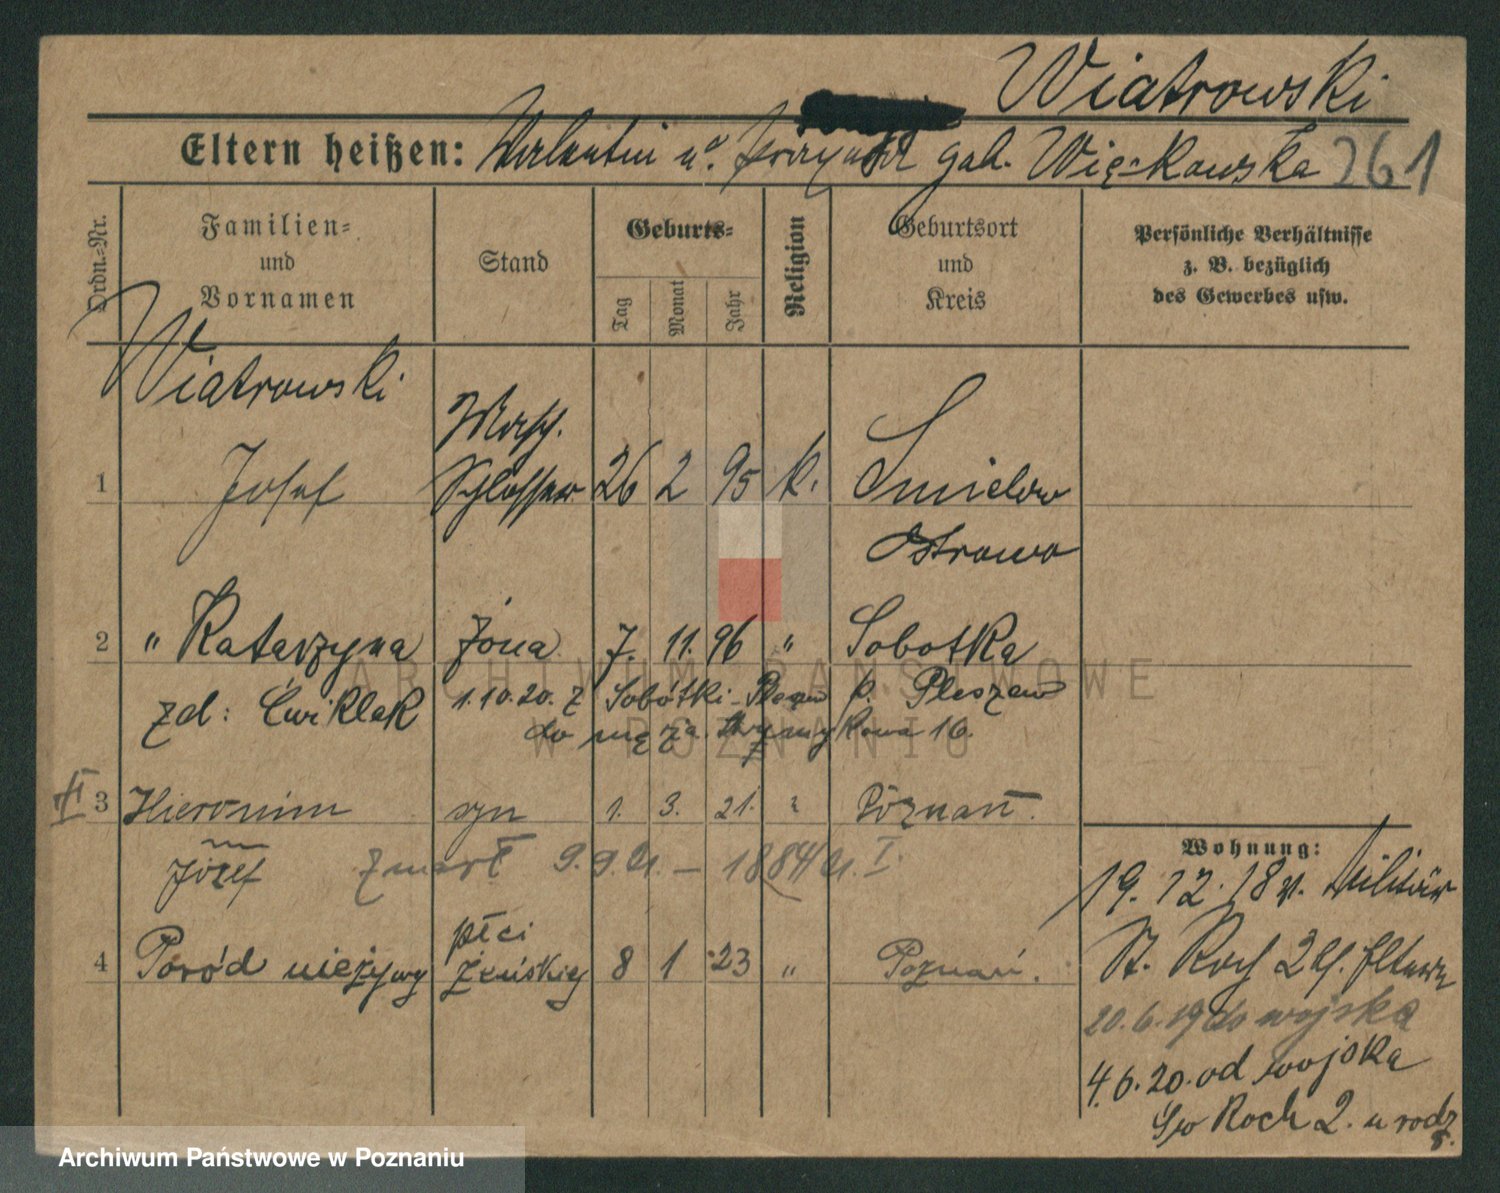 Wiatrowski
Eltern heißen: Valentin u. geb. Więckowska 261
Ordn.-Nr.
Familien- und Vornamen
Stand
Geburts-
Tag
Monat
Jahr
Religion
Geburtsort und Kreis
Persönliche Verhältnisse z. B. bezüglich des Gewerbes usw.
Wiatrowski
1 Josef Masch. Schlosser 26 2 95 k. Smielow
Ostrowo
2 " Katarzyna żona 7. 11. 96 " Sobotka
zd: Ćwiklak 1.10.20. z Sobótki p. Pleszew
do męża 16.
II 3 Hieronim syn 1. 3. 21. Poznań.
Józef zmarł 9.9.21. – 1884/21. I.
4 Poród nieżywy płci żeńskiej 8 1 23 " Poznań.
Wohnung:
19. 12. 18 v. Militär
St. Roch 2 Eltern
20.6.19 do wojska
4.6.20. od wojska
Św Roch 2. u rodz.
ARCHIWUM PAŃSTWOWE
W POZNANIU
Archiwum Państwowe w Poznaniu